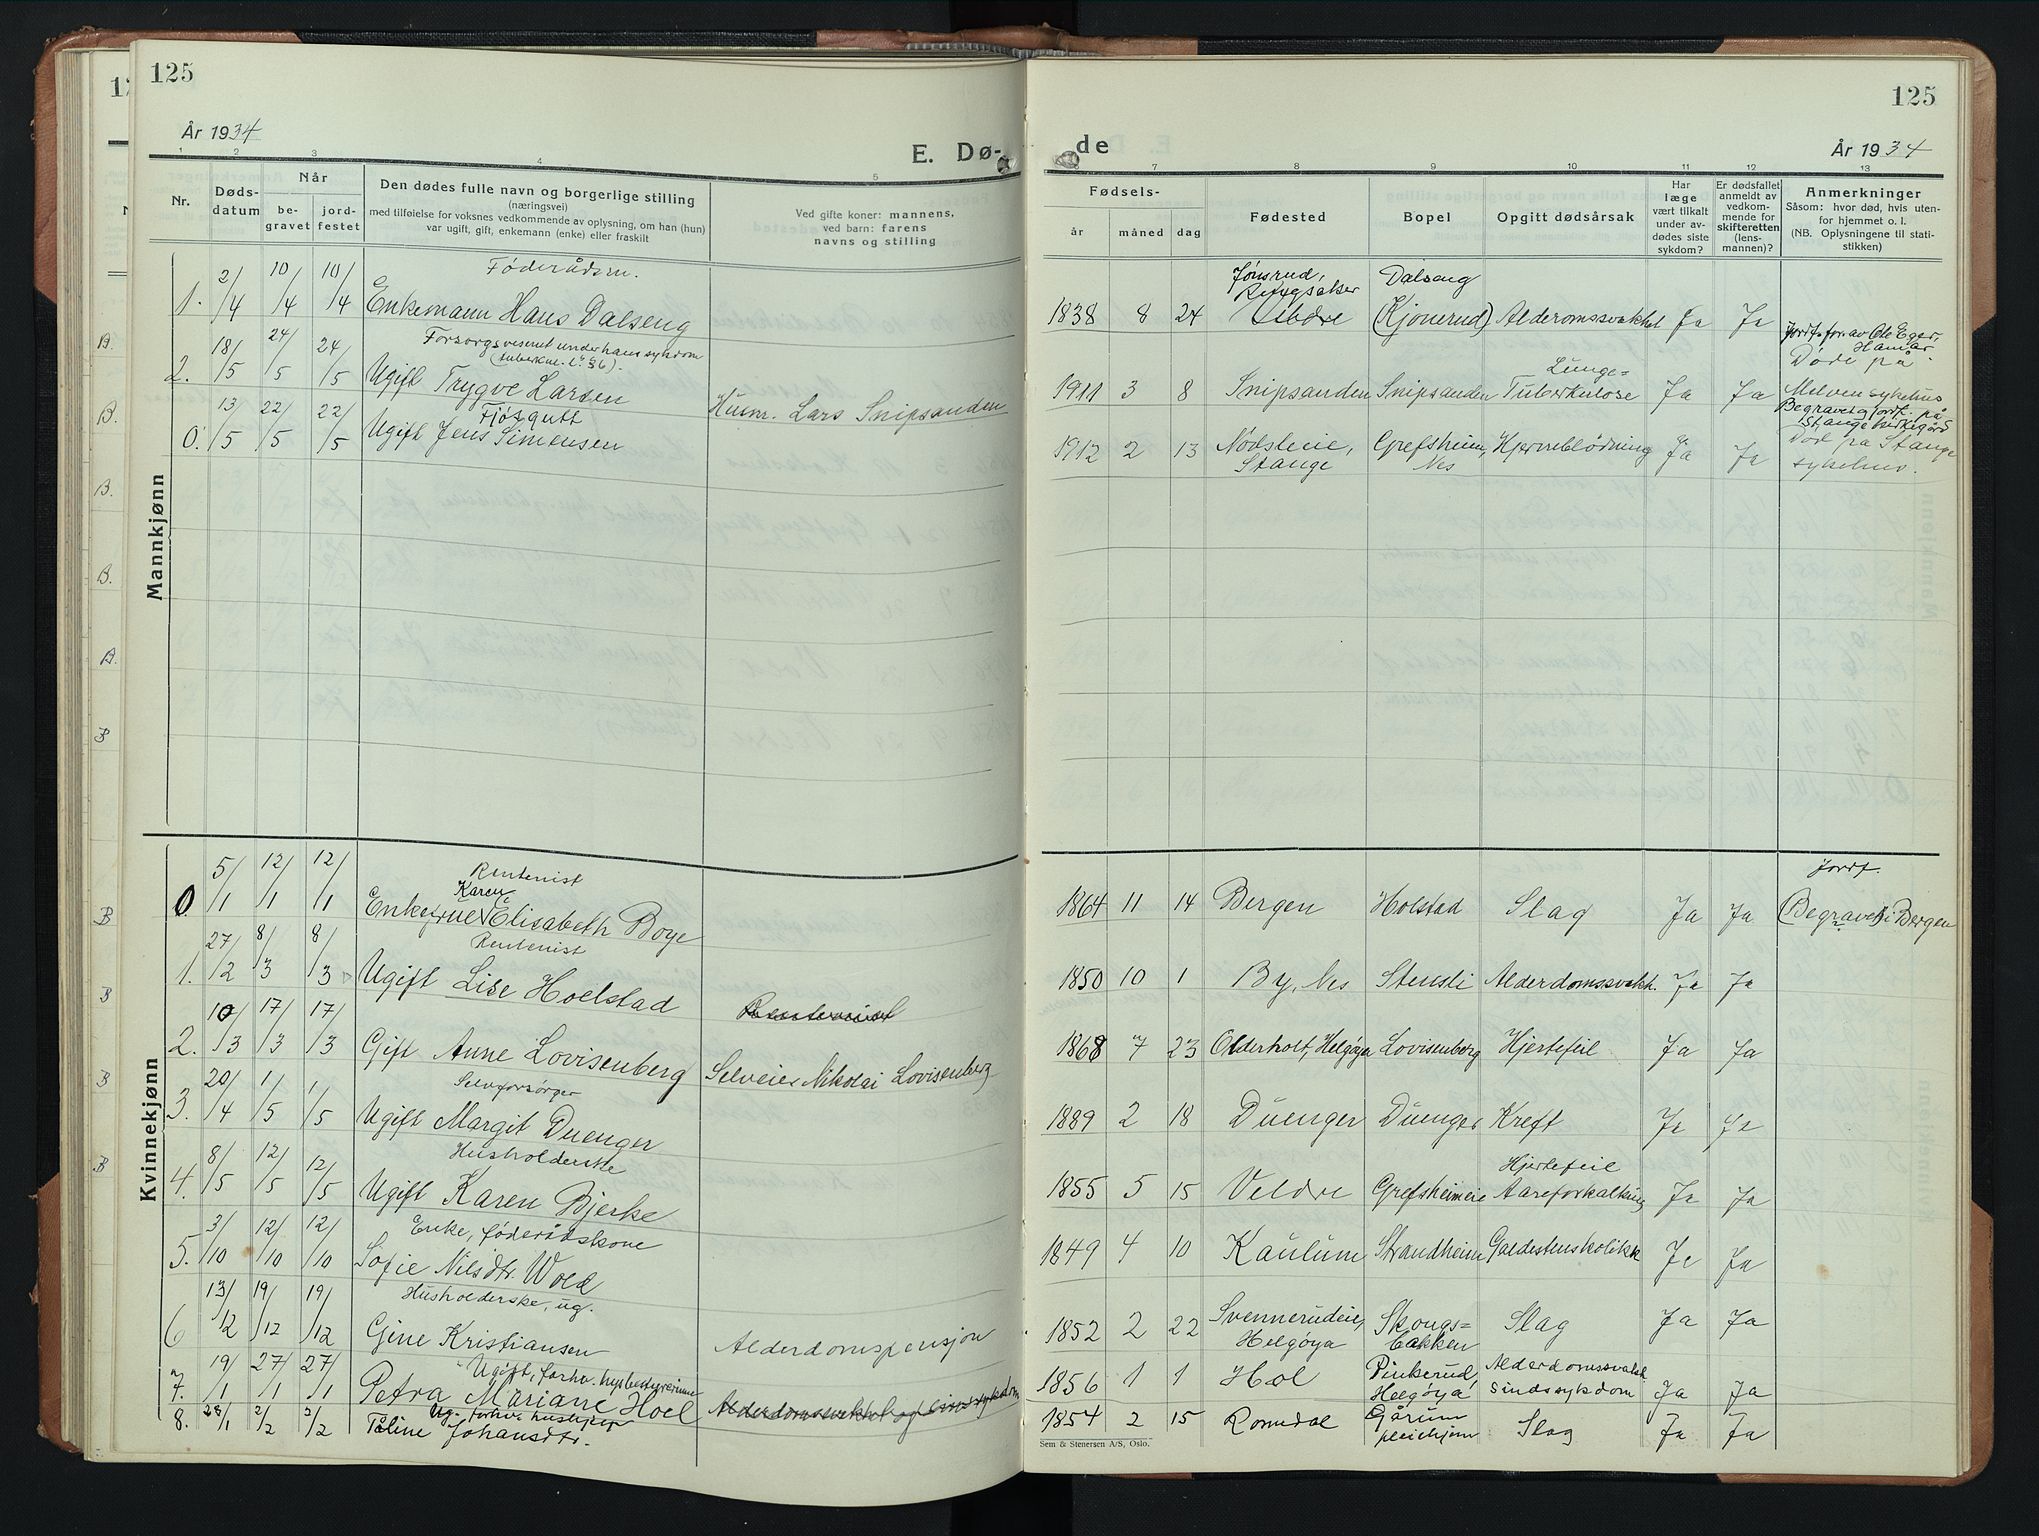 125
År 1934
E. Dø-
1 2 3 4 5
Nr.
Døds-
datum
Når
be-
gravet
jord-
festet
Den dødes fulle navn og borgerlige stilling
(næringsvei)
med tilføielse for voksnes vedkommende av oplysning, om han (hun)
var ugift, gift, enkemann (enke) eller fraskilt
Ved gifte koner: mannens,
ved barn: farens
navns og stilling
Mannkjønn
Føderådsm.
1. 2/4 10/4 10/4 Enkemann Hans Dalseng
Forsorgsvesenet under hans sykdom
(tuberkul. l. § 6).
2. 18/5 24/5 24/5 Ugift Trygve Larsen Husm. Lars Snipsanden
Fjøsgutt
0. 13/5 22/5 22/5 Ugift Jens Simensen
Kvinnekjønn
Rentenist
Karen
0 5/1 12/1 12/1 Enkefrue Elisabeth Boye
Rentenist
1. 27/2 8/3 8/3 Ugift Lise Hoelstad
Rentenist
2. 10/3 17/3 17/3 Gift Anne Lovisenberg Selveier Nikolai Lovisenberg
Selvforsørger
3. 20/4 1/5 1/5 Ugift Margit Duenger
Husholderske
4. 8/5 12/5 12/5 Ugift Karen Bjerke
Enke, føderådskone
5. 3/10 12/10 12/10 Sofie Nilsdtr. Wold
Husholderske, ug.
6 13/12 19/12 19/12 Gine Kristiansen Alderdomspensjon
Ugift, forhv. husbestyrerinne
7. 19/1 27/1 27/1 Petra Mariane Hoel Alderdomssvakhet og sinnssykdom
Ug. forhv. hushjelp
8. 28/1 2/2 2/2 Tøline Johansdtr.
125
de
År 1934
7 8 9 10 11 12 13
Fødsels-
år måned dag
Fødested
Bopel
Opgitt dødsårsak
Har
læge
vært tilkalt
under av-
dødes siste
sykdom?
Er dødsfallet
anmeldt av
vedkom-
mende for
skifteretten
(lens-
mannen)?
Anmerkninger
Såsom: hvor død, hvis uten-
for hjemmet o. l.
(NB. Oplysningene til stati-
stikken)
Jønsrud, Dalseng
Ringsaker
1838 8 24 (Kjonerud) Alderomssvakhet Ja Ja
Jordf. for. av Ole Eger,
Hamar
Lunge=
Døde på
1911 3 8 Snipsanden Snipsanden Tuberkulose Ja Ja Melven sykehus
Begravet og jordf. på
Stange kirkegård
1912 2 13 Nødsleie, Grefsheim, Hjerneblødning Ja Ja Død på Stange
Stange Nes sykehus.
Jordf.
1864 11 14 Bergen Holstad Slag Ja Ja (Begravet i Bergen
1850 10 1 By, Nes Stensli Alderdomssvakh. Ja Ja
1868 7 23 Olderholt, Helgøya Lovisenberg Hjertefeil Ja Ja
1889 2 18 Duenger Duenger Kreft Ja Ja
Hjertefeil
1855 5 15 Veldre Grefsheimeie Aareforkalkning Ja Ja
1849 4 10 Kaulum Strandheim Galdestenskolikk Ja Ja
1852 2 22 Svennerudeie, Skougs= Slag Ja Ja
Helgøya bakken
1856 1 1 Hol Pinkerud, Alderdomssvakh.
Helgøya sindssykdom Ja Ja
1854 2 15 Romedal Gårum Slag Ja Ja
pleiehjem
Sem & Stenersen A/S, Oslo.
B.
B.
B.
B.
A.
B
B
B
B
B